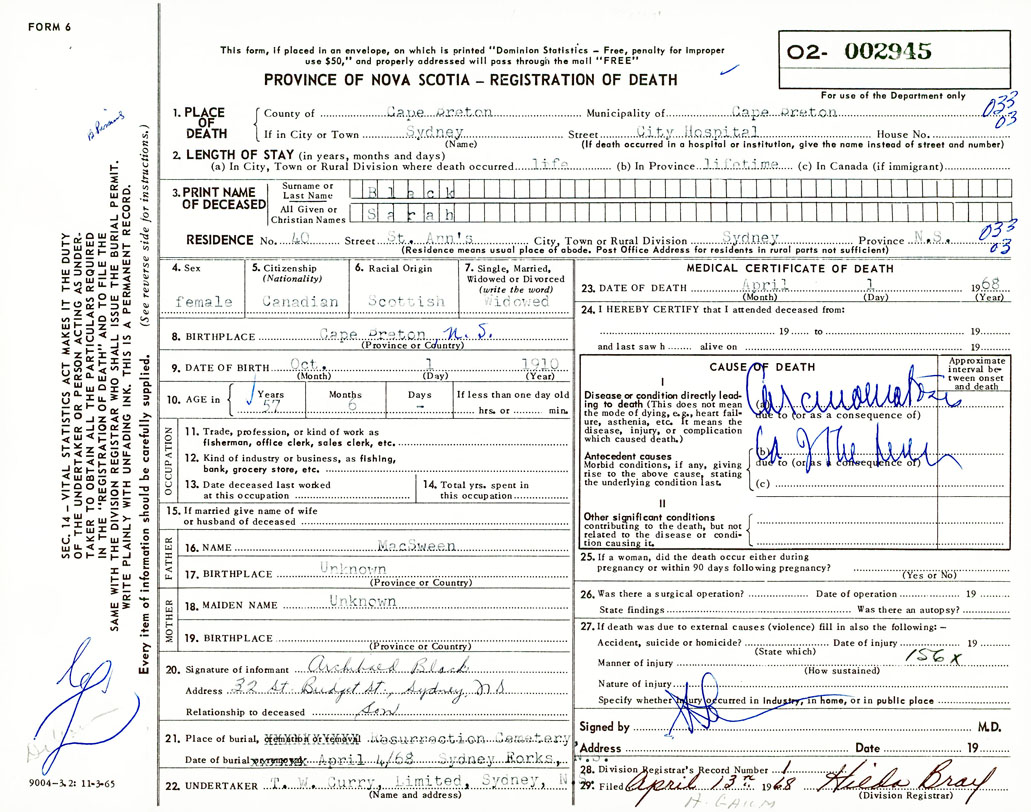 FORM 6
This form, if placed in an envelope, on which is printed "Dominion Statistics – Free, penalty for improper
use $50," and properly addressed will pass through the mail "FREE"
PROVINCE OF NOVA SCOTIA – REGISTRATION OF DEATH
O2- 002945
For use of the Department only
033
03
1. PLACE OF DEATH
County of Cape Breton Municipality of Cape Breton
If in City or Town Sydney Street City Hospital House No.
(Name) (If death occurred in a hospital or institution, give the name instead of street and number)
2. LENGTH OF STAY (in years, months and days)
(a) In City, Town or Rural Division where death occurred life (b) In Province lifetime (c) In Canada (if immigrant)
3. PRINT NAME OF DECEASED
Surname or Last Name Black
All Given or Christian Names Sarah
RESIDENCE No. 40 Street St. Ann's City, Town or Rural Division Sydney Province N.S.
(Residence means usual place of abode. Post Office Address for residents in rural parts not sufficient)
033
03
4. Sex
female
5. Citizenship
(Nationality)
Canadian
6. Racial Origin
Scottish
7. Single, Married,
Widowed or Divorced
(write the word)
Widowed
8. BIRTHPLACE Cape Breton, N.S.
(Province or Country)
9. DATE OF BIRTH Oct. 1 1910
(Month) (Day) (Year)
10. AGE in
Years Months Days If less than one day old
57 6 – hrs. or min.
OCCUPATION
11. Trade, profession, or kind of work as
fisherman, office clerk, sales clerk, etc.
12. Kind of industry or business, as fishing,
bank, grocery store, etc.
13. Date deceased last worked
at this occupation
14. Total yrs. spent in
this occupation
15. If married give name of wife
or husband of deceased
FATHER
16. NAME MacSween
17. BIRTHPLACE Unknown
(Province or Country)
MOTHER
18. MAIDEN NAME Unknown
19. BIRTHPLACE
(Province or Country)
20. Signature of informant Archibald Black
Address 32 St. Budget St., Sydney, NS
Relationship to deceased Son
21. Place of burial, cremation or removal Resurrection Cemetery,
Date of burial April 4/68 Sydney Forks, N.S.
22. UNDERTAKER T. W. Curry, Limited, Sydney, N.S.
(Name and address)
MEDICAL CERTIFICATE OF DEATH
23. DATE OF DEATH April 1 1968
(Month) (Day) (Year)
24. I HEREBY CERTIFY that I attended deceased from:
19 to 19
and last saw h alive on 19
CAUSE OF DEATH
Approximate
interval be-
tween onset
and death
I
Disease or condition directly lead-
ing to death (This does not mean
the mode of dying, e.g., heart fail-
ure, asthenia, etc. It means the
disease, injury, or complication
which caused death.)
(a) Carcinomatosis
due to (or as a consequence of)
Antecedent causes
Morbid conditions, if any, giving
rise to the above cause, stating
the underlying condition last.
(b) Ca of the
due to (or as a consequence of)
(c)
II
Other significant conditions
contributing to the death, but not
related to the disease or condi-
tion causing it.
25. If a woman, did the death occur either during
pregnancy or within 90 days following pregnancy?
(Yes or No)
26. Was there a surgical operation? Date of operation 19
State findings Was there an autopsy?
27. If death was due to external causes (violence) fill in also the following: –
Accident, suicide or homicide? Date of injury 19
(State which)
156 x
Manner of injury
(How sustained)
Nature of injury
Specify whether injury occurred in Industry, in home, or in public place
Signed by M.D.
Address Date 19
28. Division Registrar's Record Number
29. Filed April 13th 1968 Hilda Bray
(Division Registrar)
SEC. 14 – VITAL STATISTICS ACT MAKES IT THE DUTY
OF THE UNDERTAKER OR PERSON ACTING AS UNDER-
TAKER TO OBTAIN ALL THE PARTICULARS REQUIRED
IN THE "REGISTRATION OF DEATH" AND TO FILE THE
SAME WITH THE DIVISION REGISTRAR WHO SHALL ISSUE THE BURIAL PERMIT.
WRITE PLAINLY WITH UNFADING INK. THIS IS A PERMANENT RECORD.
Every item of information should be carefully supplied. (See reverse side for instructions.)
9004-3.2: 11-3-65